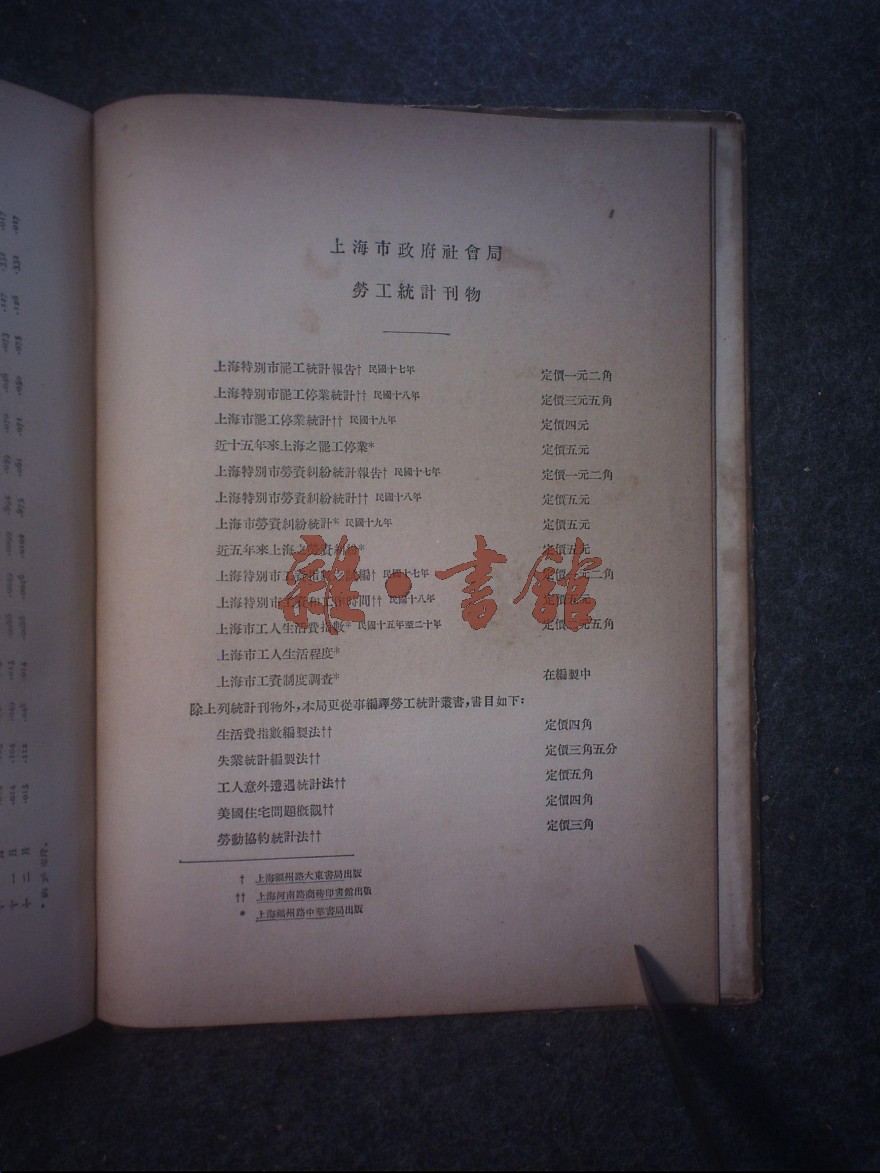 上海市政府社會局
勞工統計刊物
上海特別市罷工統計報告† 民國十七年 定價一元二角
上海特別市罷工停業統計†† 民國十八年 定價三元五角
上海市罷工停業統計†† 民國十九年 定價四元
近十五年來上海之罷工停業* 定價五元
上海特別市勞資糾紛統計報告† 民國十七年 定價一元二角
上海特別市勞資糾紛統計†† 民國十八年 定價五元
上海市勞資糾紛統計* 民國十九年 定價五元
近五年來上海之勞資糾紛* 定價五元
上海特別市工資指數之試編† 民國十七年 定價一元二角
上海特別市工資和工作時間†† 民國十八年 定價五元
上海市工人生活費指數* 民國十五年至二十年 定價元五角
上海市工人生活程度*
上海市工資制度調查* 在編製中
除上列統計刊物外,本局更從事編譯勞工統計叢書,書目如下:
生活費指數編製法†† 定價四角
失業統計編製法†† 定價三角五分
工人意外遭遇統計法†† 定價五角
美國住宅問題概觀†† 定價四角
勞動協約統計法†† 定價三角
† 上海福州路大東書局出版
†† 上海河南路商務印書館出版
* 上海福州路中華書局出版
雜·書館